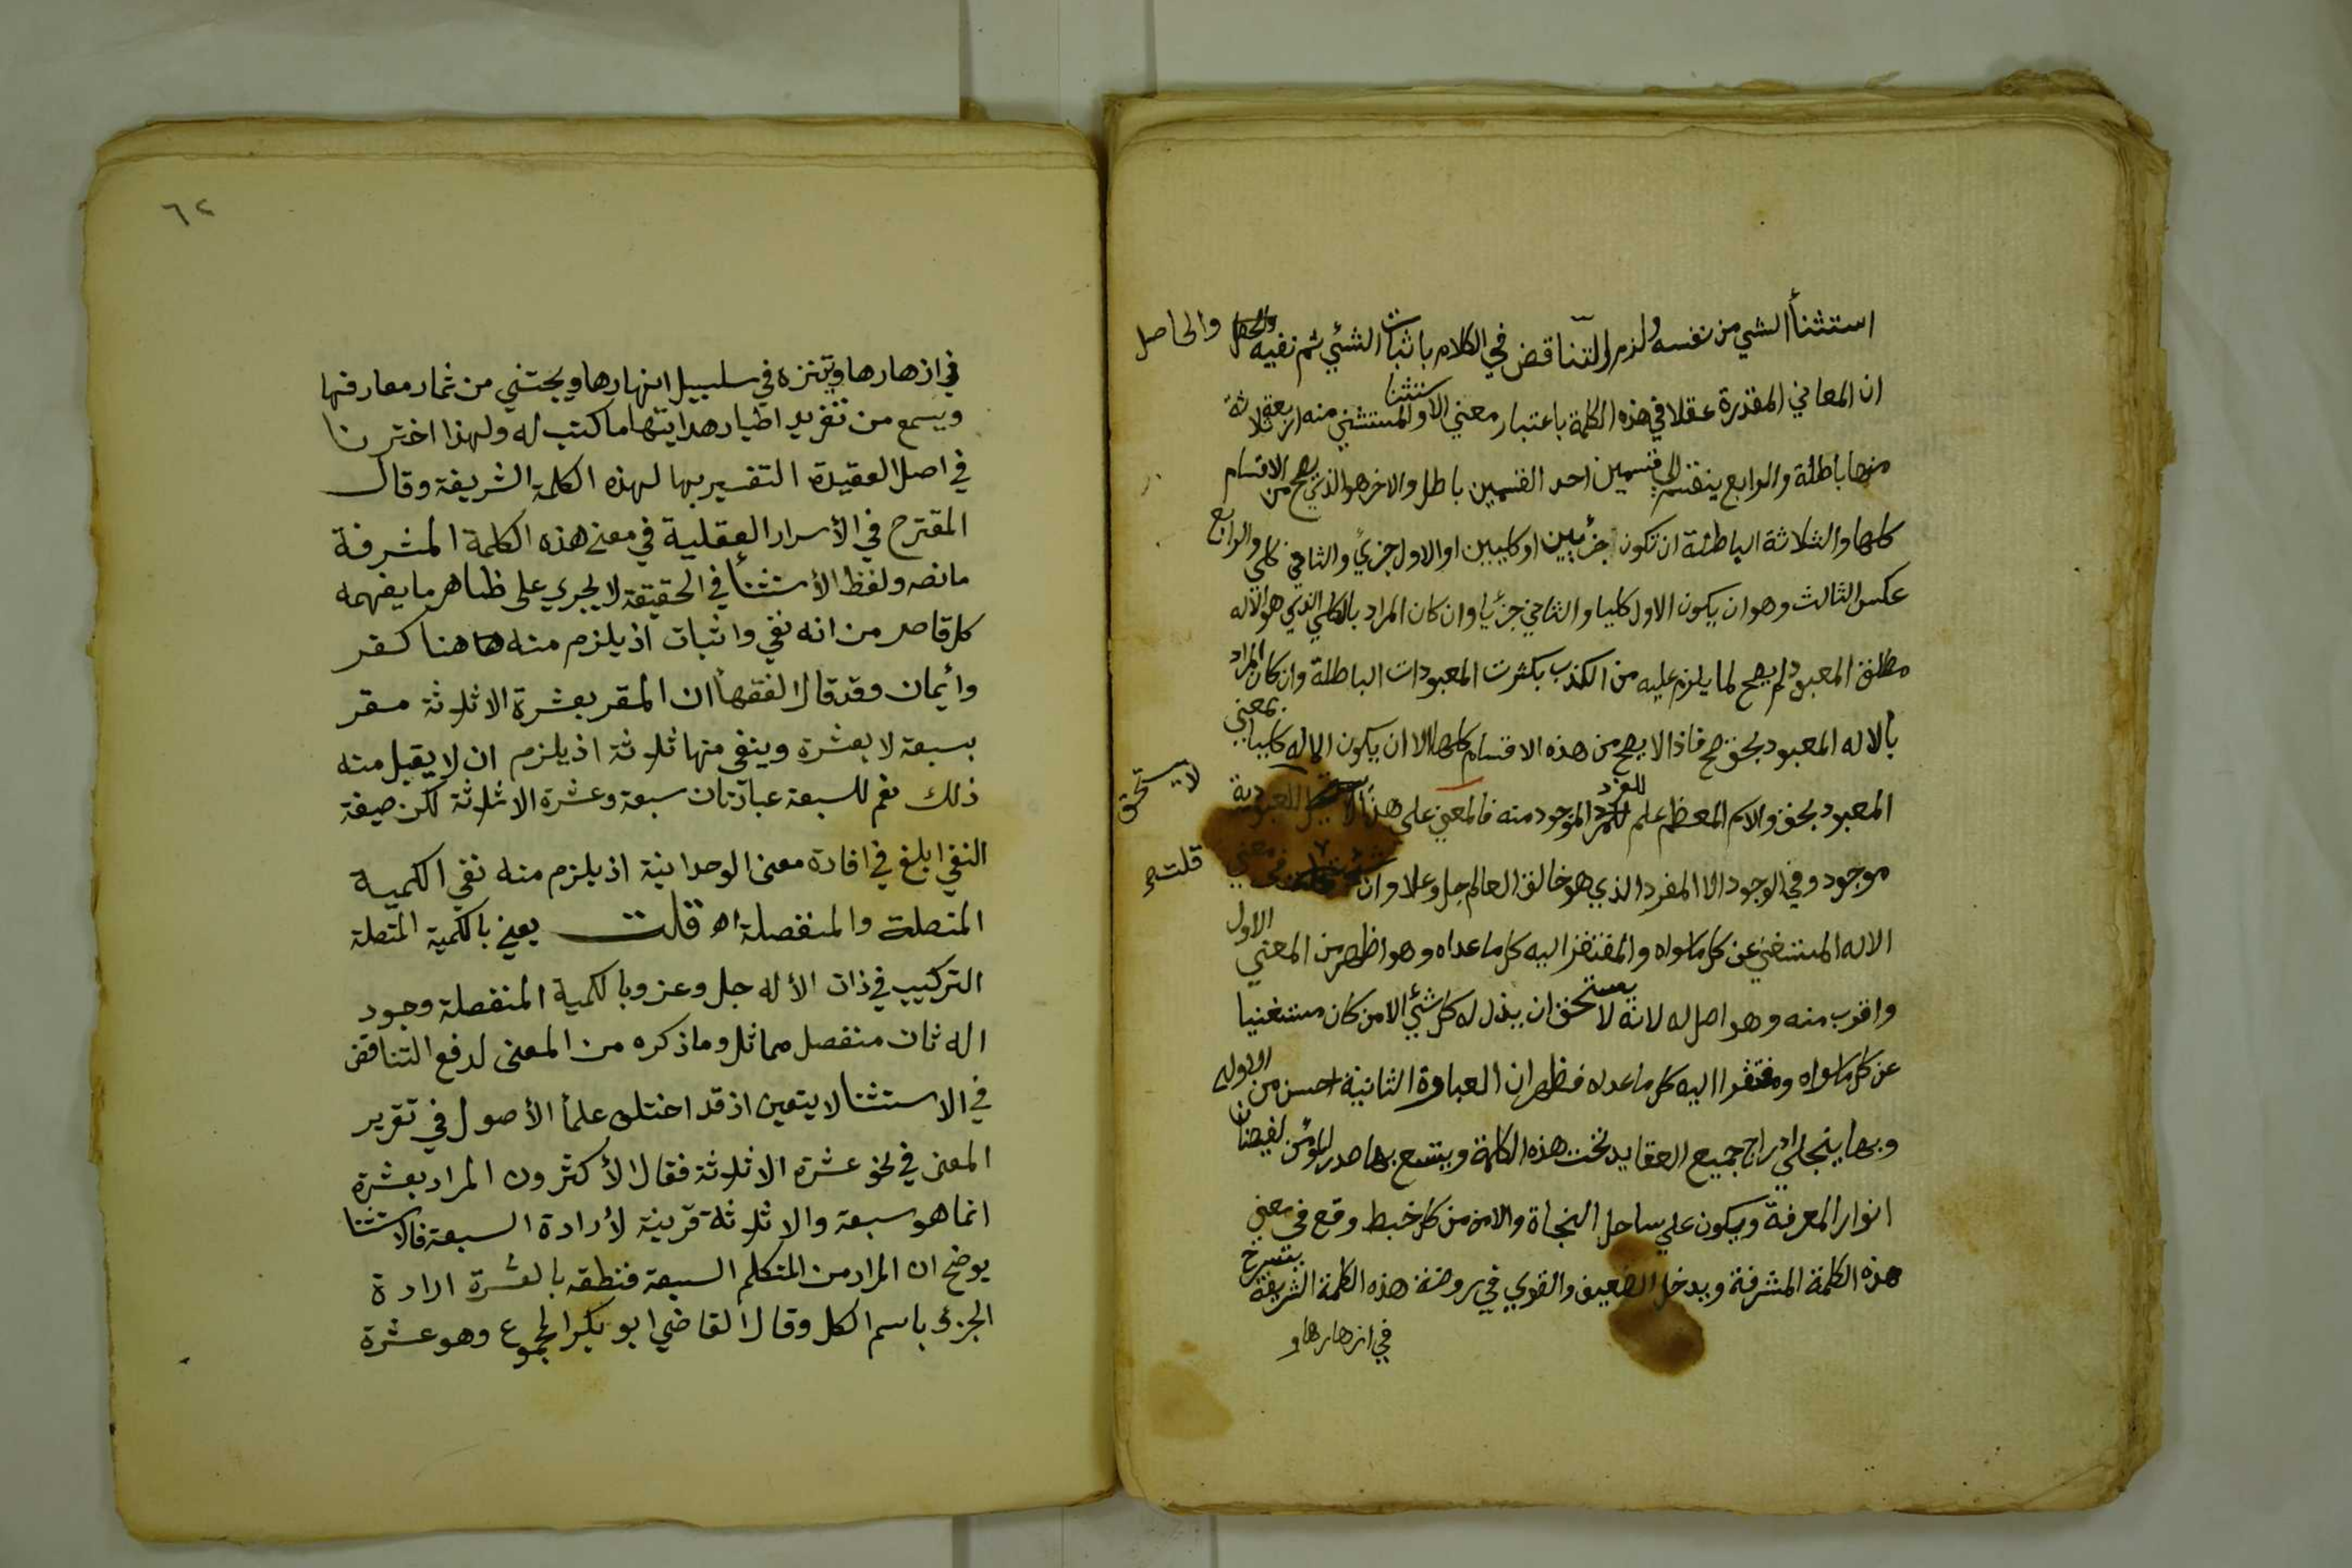 استثنأ الشي من نفسه ولزم التناقض في الكلام باثبات الشئي ثم نفيه والحاصل
ان المعاني المقدرة عقلا في هذه الكلمة باعتبار معني الاستثنا والمستثني منه اربعة ثلاثة
منها باطلة والرابع ينقسم الي قسمين احد القسمين باطل والاخر هو الذي يصح من الاقسام
كلها والثلاثة الباطلة ان تكون جزئيين او كليين او الاول جزئي والثاني كلي والرابع
عكس الثالث وهو ان يكون الاول كليا والثاني جزئيا وان كان المراد بالكلي الذي هو الاله
مطلق المعبود لم يصح لما يلزم عليه من الكذب بكثرت المعبودات الباطلة وان كان المراد
بالاله المعبود بحق صح فاذا لا يصح من هذه الاقسام كلها الا ان يكون الاله كليا بمعني
المعبود بحق والاسم المعظم علم للفرد الموجود منه فالمعني علي هذا لا يستحق للعبودية
لا يستحق
موجود وفي الوجود الا المفرد الذي هو خالق العالم جل وعلا وان شئت قلت في معني
قلت صح
الاله المستغني عن كل ما سواه والمفتقر اليه كل ما عداه وهو اظهر من المعني الاول
واقرب منه وهو اصل له لانه لا يستحق ان يذل له كل شئي الا من كان مستغنيا
عن كل ما سواه ومفتقرا اليه كل ما عداه فظهر ان العبارة الثانية احسن من الاولي
وبها ينجلي ادراج جميع العقايد تحت هذه الكلمة ويتسع بها صدر المؤمن لفيضان
انوار المعرفة ويكون علي ساحل النجاة والامن من كل خبط وقع في معني
هذه الكلمة المشرفة ويدخل الضعيف والقوي في روضة هذه الكلمة الشريفة يتسرح
في ازهارها و
٦٢
في ازهارها ويتنزه في سلسبيل انهارها ويجتني من ثمار معارفها
ويسمع من تغريد اطيار هدايتها ما كتب له ولهذا اخترنا
في اصل العقيدة التفسير بها لهذه الكلمة الشريفة وقال
المقترح في الأسرار العقلية في معنى هذه الكلمة المشرفة
ما نصه ولفظ الأستثنأ في الحقيقة لا يجري على ظاهر ما يفهمه
كل قاصر من انه نفي واثبات اذ يلزم منه هاهنا كفر
وأيمان وقد قال الفقهأ ان المقر بعشرة الا ثلاثة مقر
بسبعة لا بعشرة وينفى منها ثلاثة اذ يلزم ان لا يقبل منه
ذلك نعم للسبعة عبارتان سبعة وعشرة الا ثلاثة لكن صيغة
النفي ابلغ في افادة معنى الوحدانية اذ يلزم منه نفي الكمية
المتصلة والمنفصلة اه قلت يعني بالكمية المتصلة
التركيب في ذات الأله جل وعز وبالكمية المنفصلة وجود
اله ثان منفصل مماثل وما ذكره من المعنى لدفع التناقض
في الاستثنا لا يتعين اذ قد اختلف علمأ الأصول في تقرير
المعنى في نحو عشرة الا ثلاثة فقال الأكثرون المراد بعشرة
انما هو سبعة والا ثلاثة قرينة لأرادة السبعة فالاستثنا
يوضح ان المراد من المتكلم السبعة فنطقه بالعشرة ارادة
الجزئ باسم الكل وقال القاضي ابو بكر المجموع وهو عشرة